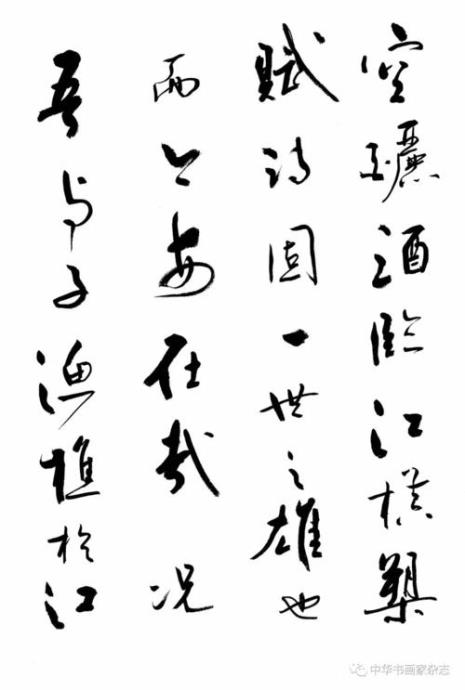 空釃酒臨江横槊
賦诗固一世之雄也
而今安在哉况
吾与子渔樵於江
中华书画家杂志